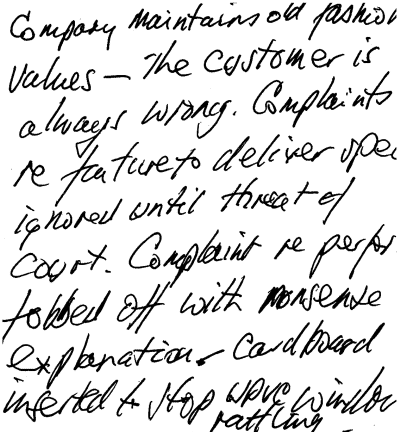 Company maintains old fashion
values — The customer is
always wrong. Complaints
re failure to deliver spec
ignored until threat of
court. Complaint re perfor
fobbed off with nonsense
explanation. Cardboard
inserted to stop window
rattling